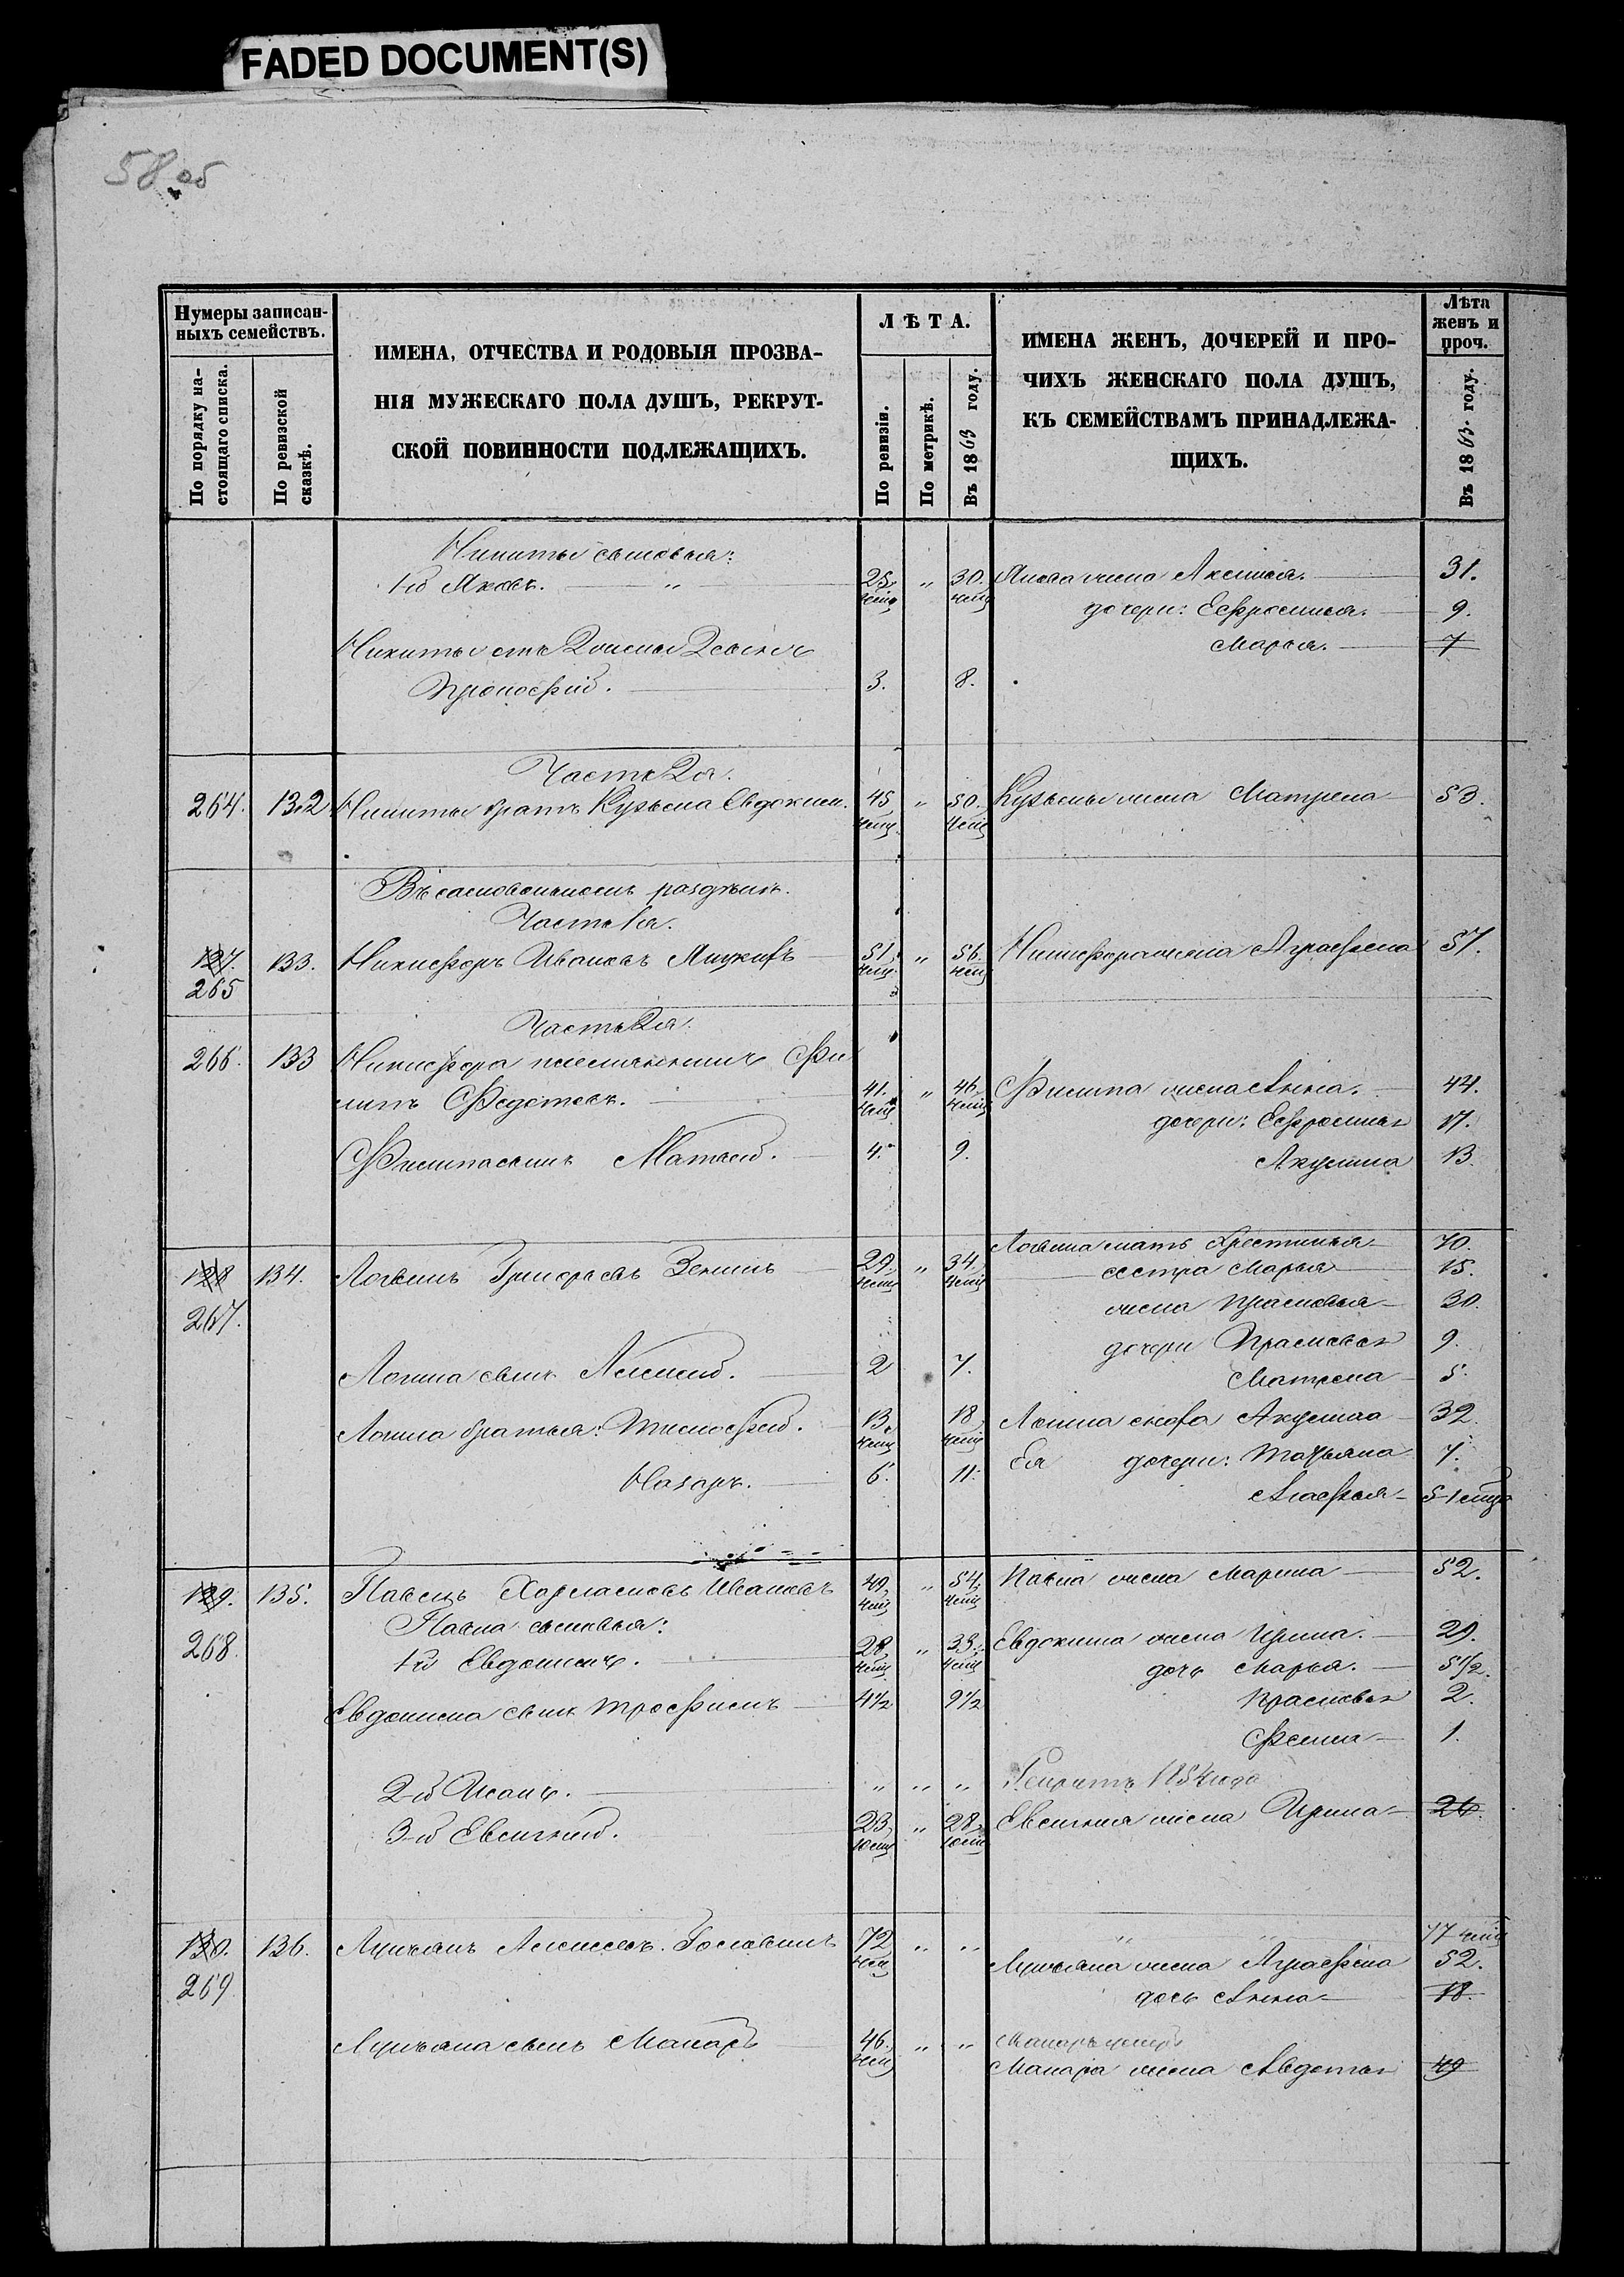 FADED DOCUMENT(S)
58 об
Нумеры записан-
ныхъ семействъ.
По порядку на-
стоящаго списка.
По ревизской
сказкѣ.
ИМЕНА, ОТЧЕСТВА И РОДОВЫЯ ПРОЗВА-
НІЯ МУЖЕСКАГО ПОЛА ДУШЪ, РЕКРУТ-
СКОЙ ПОВИННОСТИ ПОДЛЕЖАЩИХЪ.
ЛѢТА.
По ревизіи.
По метрикѣ.
Въ 1863 году.
ИМЕНА ЖЕНЪ, ДОЧЕРЕЙ И ПРО-
ЧИХЪ ЖЕНСКАГО ПОЛА ДУШЪ,
КЪ СЕМЕЙСТВАМЪ ПРИНАДЛЕЖА-
ЩИХЪ.
Лѣта
женъ и
проч.
Въ 1863. году.
Никиты сыновья:
1й Яковъ. " 25. " 30. Якова жена Аксинья. 31.
дочери: Ефросинья. 9.
Марья. 7
Никиты отъ
Прокофій. 3. 8.
Часть 2я.
264. 132 Никиты братъ Кузьма Евдоким. 45 " 50. Кузьмы жена Матрена 53.
раздѣлѣ.
Часть 1я.
127. 133. Никифоръ Ивановъ 51, " 56. Никифора жена Аграфена 57.
265
Часть 2я.
266. 133 Никифора племянникъ Фи
липъ Федотовъ. 41. " 46, Филипа жена Анна. 44.
дочери: Ефросинья 17.
Филипа сынъ Матвей. 4. 9. Акулина 13.
Логвина мать Хрестинья 70.
128 134. Логвинъ Григорьевъ Зенинъ 29. " 34, сестра Марья 15.
267. жена Прасковья 30.
дочери Прасковья 9.
Логина сынъ Алексей. 2 7. Матрена 5.
Логина братья: Тимофей. 13, 18, Логина сноха Акулина 32.
Ея дочери: Татьяна 7.
Назаръ. 6. 11. Агафья 5-
129. 135. Павелъ Харламовъ Ивановъ 49, " 54, Павла жена Марина 52.
268 Павла сыновья:
1й Евдокимъ. 28, " 33. Евдокима жена Ирина. 29.
дочь Марья. 5 1/2.
Евдокима сынъ Трофимъ 4 1/2 9 1/2 Прасковья 2.
1.
2-й Иванъ. " " " 1854 года
3-й Евсигней. 23, " 28, Евсигнея жена Ирина 26.
130. 136. Лукьянъ Алексеевъ. 72 " " " " 77
269 Лукьяна жена Аграфена 52.
дочь Анна 18.
Лукьяна сынъ Макаръ 46. " "
Макара жена Авдотья 49